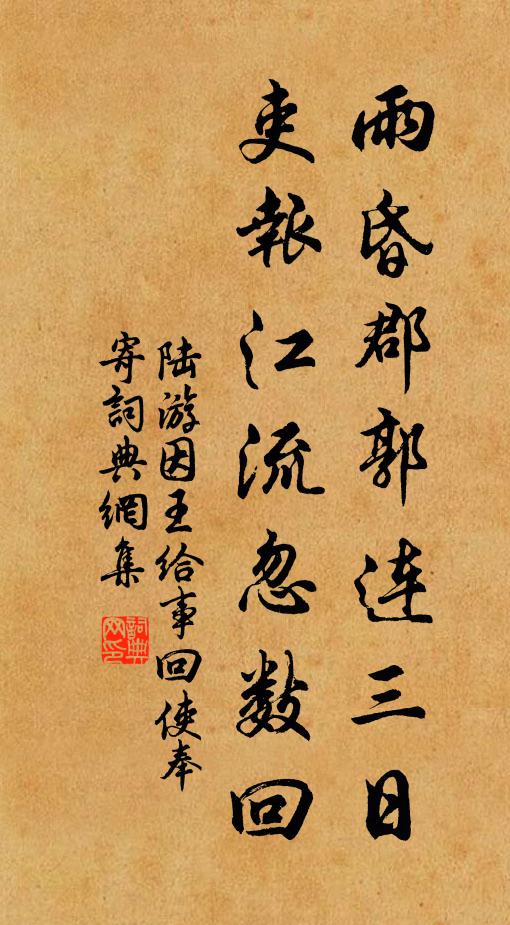 雨昏郡郭連三日
吏報江流忽数回
陆游因王给事回使奉
寄詞典網集
詞典網印